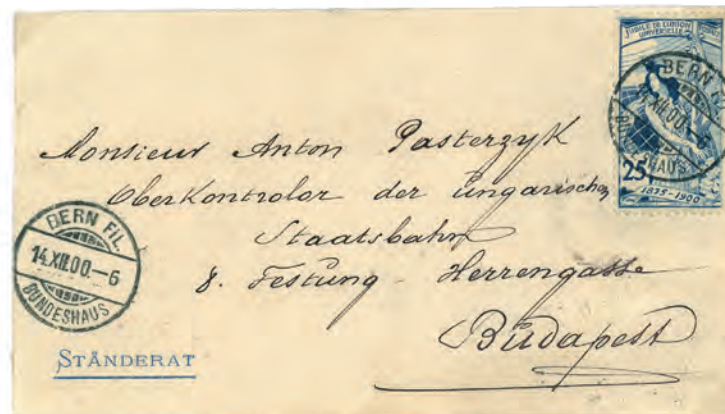 JUBILÉ DE L'UNION POSTALE
UNIVERSELLE
BERN FIL.
14.XII.00.–6
BUNDESHAUS
25
1875–1900
Monsieur Anton Pasterzyk
Oberkontrolor der ungarischen
Staatsbahn
8. Festung - Herrengasse
Budapest
BERN FIL.
14.XII.00.–6
BUNDESHAUS
STÄNDERAT